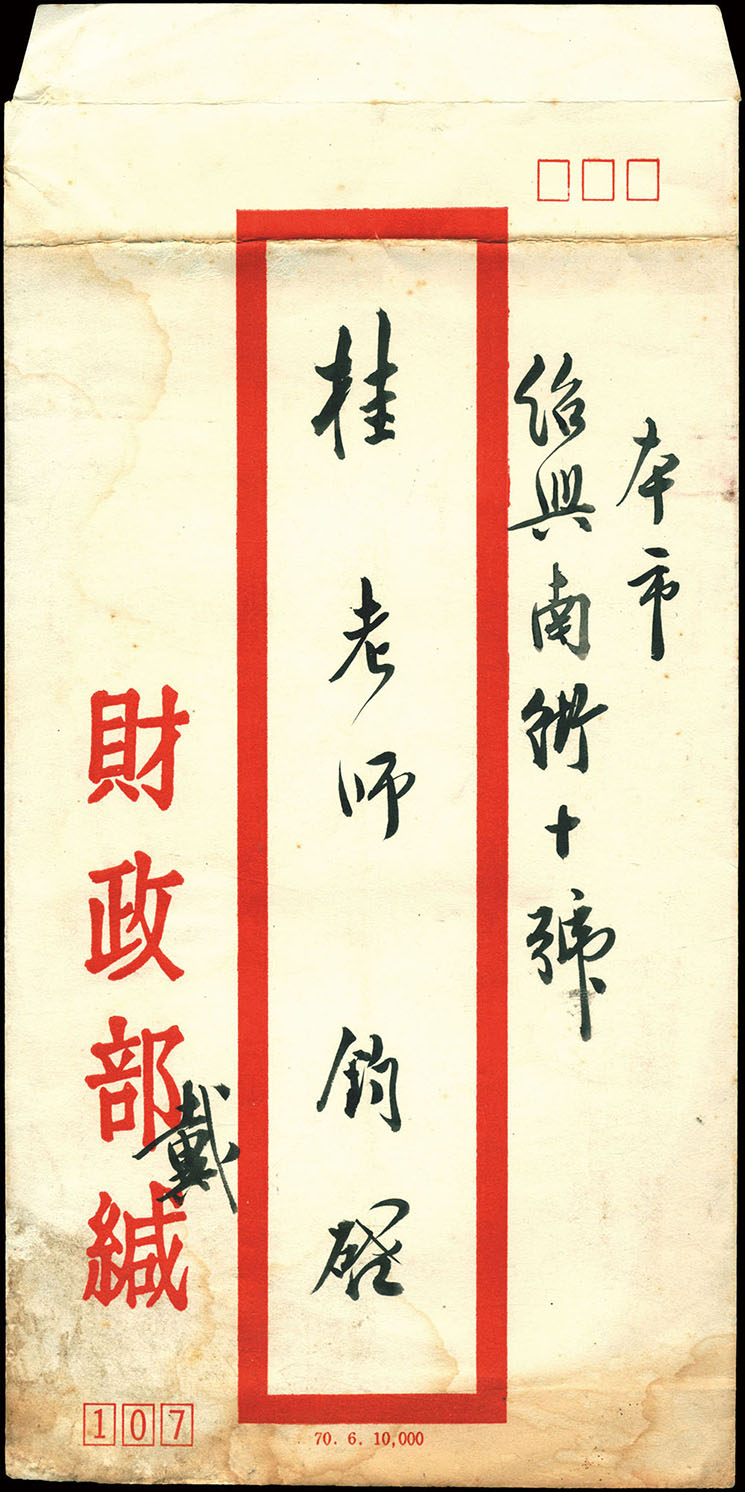 本市
紹興南街十號
桂老師 鈞啓
財政部緘
戴
107
70. 6. 10,000